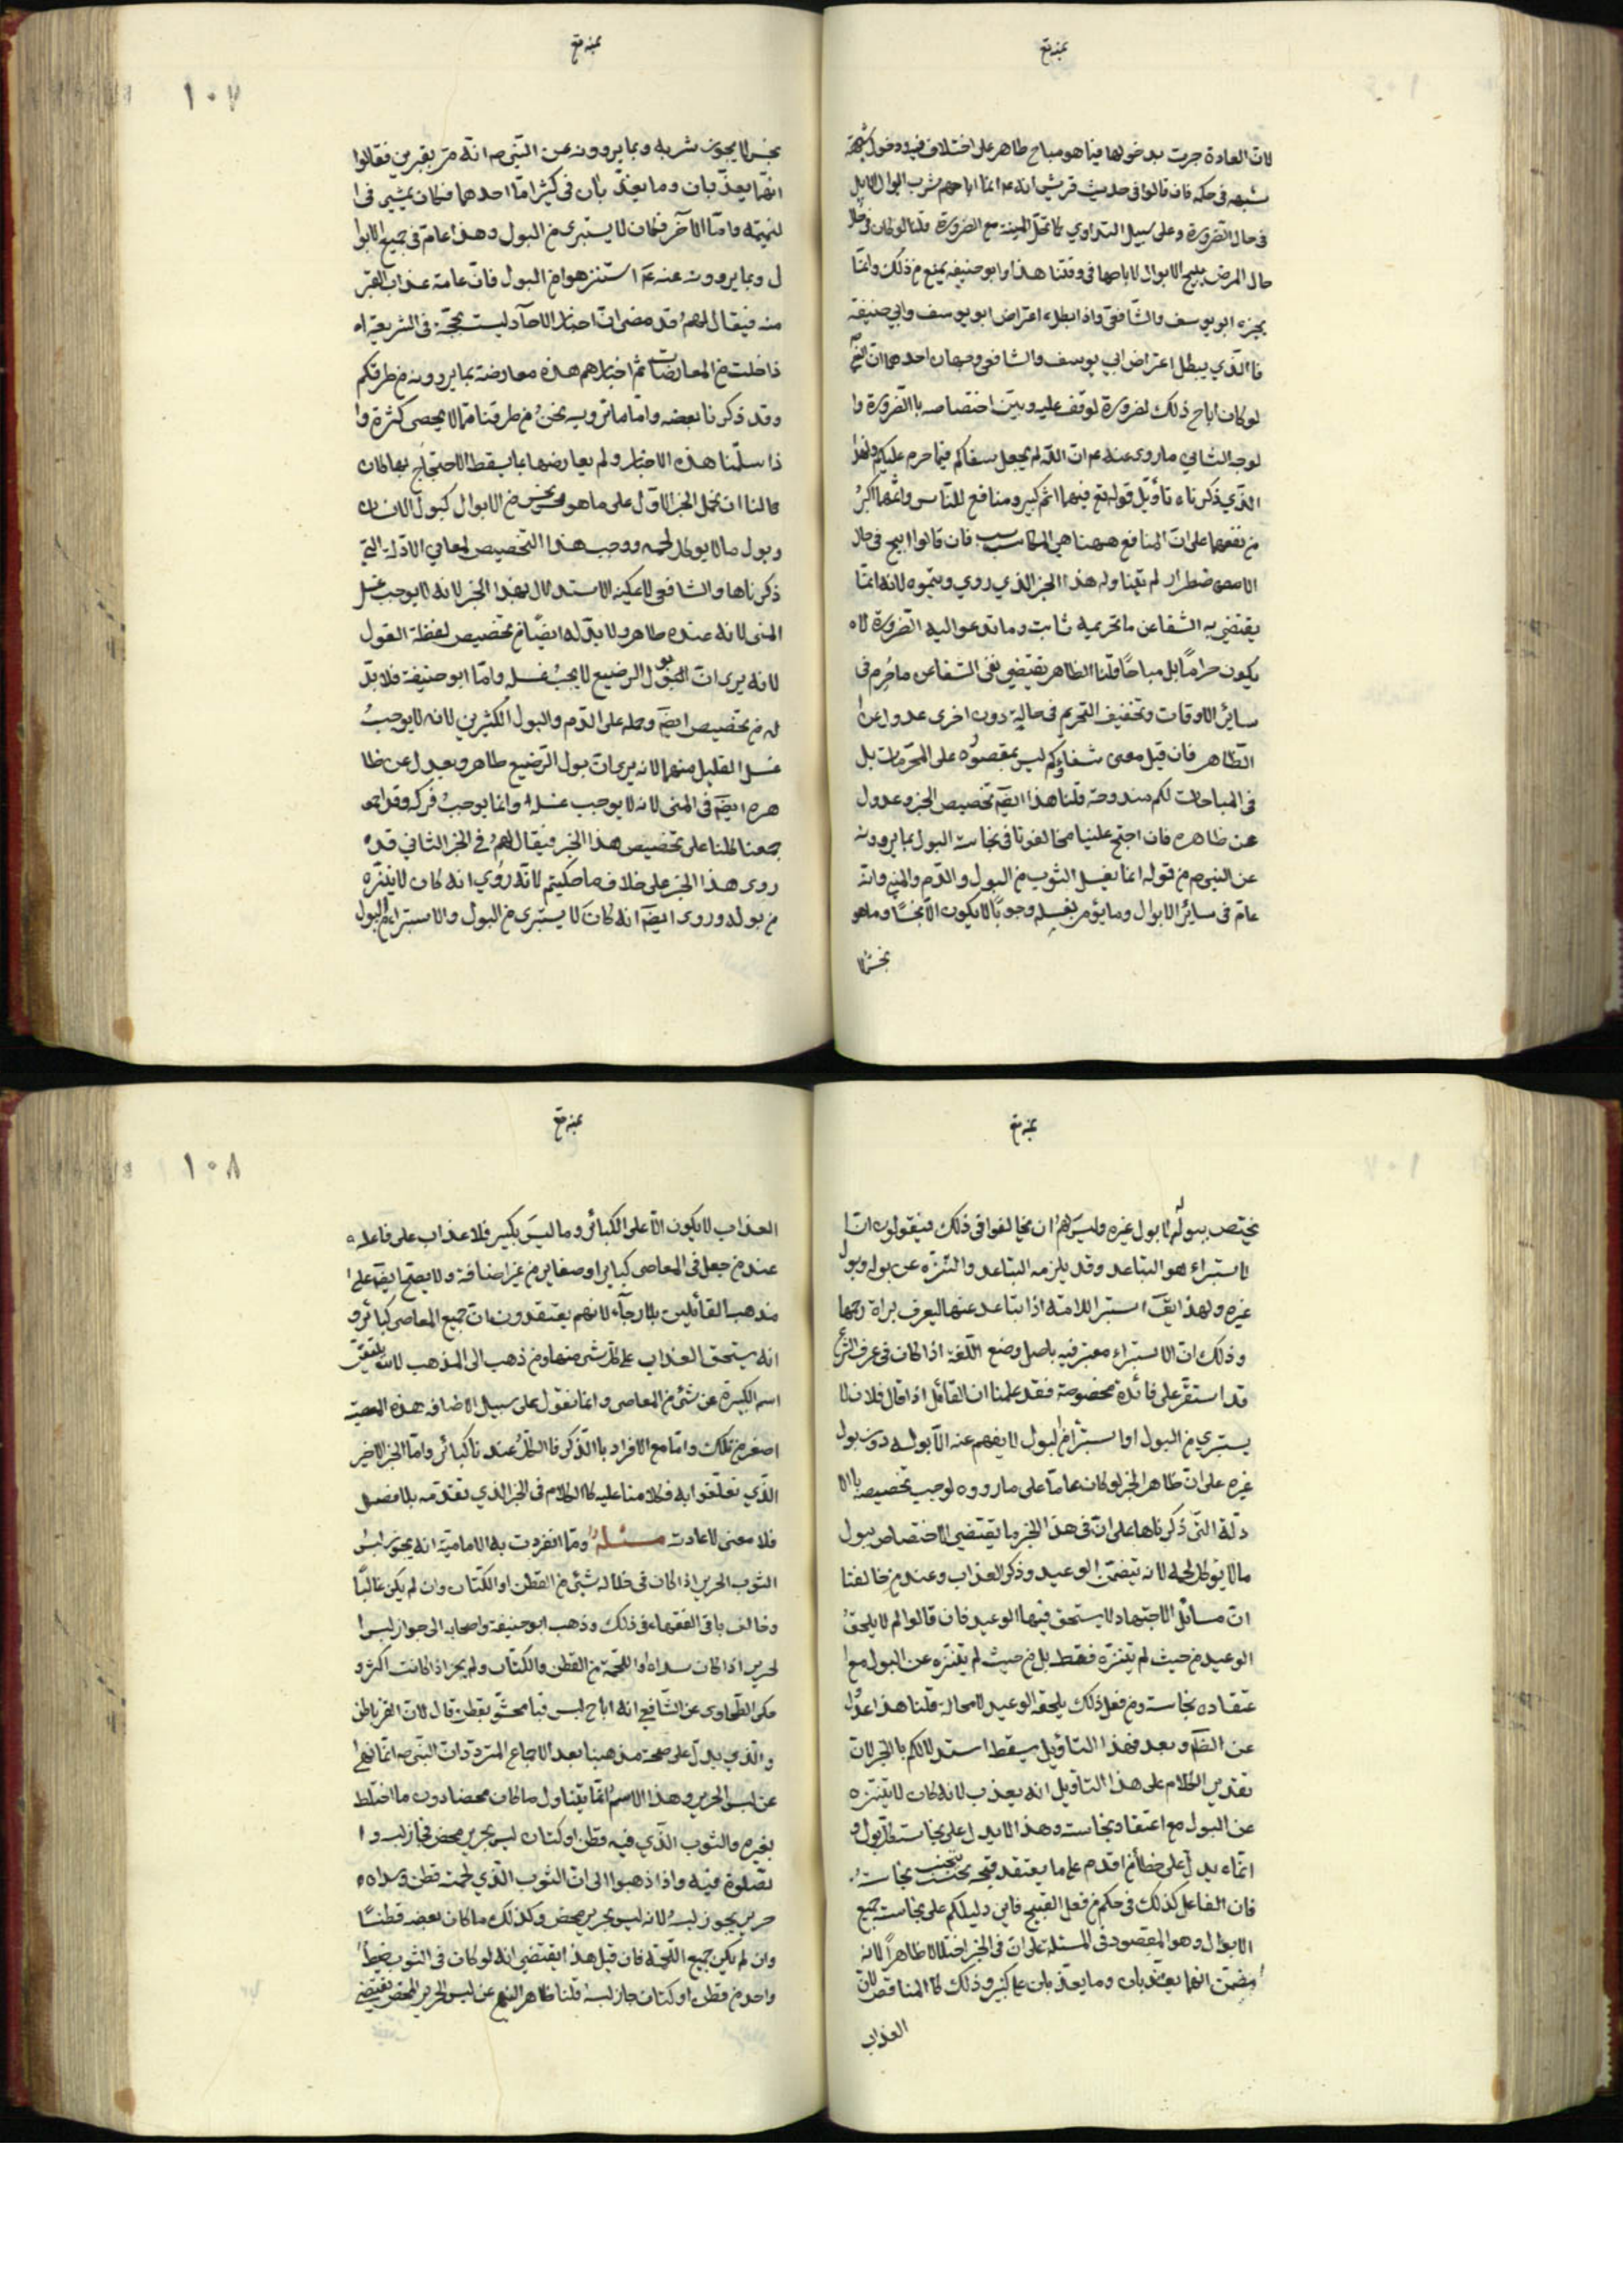 بمنه تع
لان العادة جرت بدخولها فيما هو مباح طاهر على اختلاف فيه ودخول شبهة
شبهه في حكمه فان قالوا في حديث قريش انه عم انما اباحهم شرب ابوال الابل
في حال الضرورة وعلى سبيل التداوي كما تحل الميتة مع الضرورة قلنا لو كان في حال
حال المرض يبيح الابوال لاباحها في وقتنا هذا وابو حنيفه يمنع من ذلك وانما
يجيزه ابو يوسف والشافعي واذا بطل اعتراض ابو يوسف وابي حنيفة
فالذي يبطل اعتراض ابي يوسف والشافعي وجهان احدهما ان النبي
لو كان اباح ذلك لضرورة لوقف عليه وبين اختصاصه باالضرورة وا
لوجه الثاني ما روى عنه عم ان الله لم يجعل شفاكم فيما حرم عليكم ولهذا
الذي ذكرناه تأويل قوله تع فيهما اثم كبير ومنافع للناس واثمهما اكبرُ
من نفعهما على ان المنافع ههنا هي المكاسب فان قالوا ابيح في حال
الاضطرار لم يتناوله هذا الخبر الذي روي ويتموه لانه انما
يقتضي به الشفا عن ما تحريمه ثابت وما تدعوا اليه الضرورة لا
يكون حراماً بل مباحاً قلنا الظاهر يقتضي نفى الشفا عن ما حُرِم في
سائر الاوقات وتخفيف التحريم في حالةٍ دون اخرى عدول عن
الظاهر فان قيل معنى شفاؤكم ليس بمقصوره على المحرمات بل
في المباحات لكم مندوحة قلنا هذا ايضه تخصيص الخبر وعدول
عن ظاهره فان احتج علينا مخالفونا في نجاسة البول بما يروونه
عن النبي ص من قوله انما يغسل الثوب من البول والدم والمني وانه
عام في سائر الابوال وما يؤمر بغسله وجوباً لا يكون الا نجساً وما هو
نجسٌ لا
بمنه تع
١٠٧
نجس لا يجوز شربه وبما يروونه عن النبي ص انه مرّ بقبرين فقالوا
انهما يعذبان وما يعذبان في كثير امّا احدهما فكان يمشي في ا
لنميمة وامّا الآخر فكان لا يستبرى من البول وهذا عام في جميع الابوا
ل وبما يروونه عنه عم استنزهوا من البول فان عامة عذاب القبر
منه فيقال لهمُ قد مضى ان اخبار الاحآد ليست بحجّة في الشريعة اه
ذا خلت من المعارضات ثم اخباركم هذه معارضة بما يروونه من طرقكم
وقد ذكرنا بعضه وامّا ما نرويه نحنُ من طرقنا ممّا لا يحصى كثرة وا
ذا سلّمنا هذه الاخبار ولم يعارضها بما يسقط الاحتجاج بها كان
كالنا ان نحمل الخبر الاوّل على ما هو نجس من الابوال كبول الانسان
وبول ما لا يوكل لحمه ووجب هذا التخصيص لمعاني الادلة التي
ذكرناها والشافعي لا يمكنه الاستدلال بهذا الخبر لانه لا يوجب غسل
المني لانه عنده طاهر ولا بدّ له ايضّا من تخصيص لفظة القول
لانه يرى ان البول الرضيع لا يجبُ غسله وامّا ابو حنيفة فلا بدّ
له من تخصيص ايضه وحمله على الدم والبول الكثيرين لانه لا يوجبُ
غسل القليل منهما لانه يرى ان بول الرضيع طاهر ويعدل عن ظا
هره ايضه في المني لانه لا يوجب غسله وانما يوجبُ فركه وقد اجمعو
جمعنا كلنا على تخصيص هذا الخبر فيقال لهمُ في الخبر الثاني قد
روى هذا الخبر على خلاف ما حكيتم لانه رُوي انه كان لا يتنزه
من بوله وروى ايضه انه كانَ لا يستبرى من البول والاستبراء من البول
بمنه تع
يختص ببوله لا بول غيره وليس لهمُ ان يخالفوا في ذلك فيقولون انّ ا
لاستبراء هو التباعد وقد يلزمه التباعد والتنزّه عن بوله وبول
غيره ولهذا يقآ استبر اللامته اذا تباعد عنها ليعرف براة رحمها
وذلك ان الاستبراء معتبر فيه باصل وضع اللّغة اذا كان في عرف الشرع
قد استقر على فائدة مخصوصة فقد علمنا ان القائل اذا قال فلان لا
يستبرى من البول او استبرا من البول لا يفهم عنه الا بوله دون بول
غيره على ان ظاهر الخبر لو كان عاماً على ما رووه لوجب تخصيصه باالا
دلة التي ذكرناها على ان في هذا الخبر ما يقتضي الاختصاص ببول
ما لا يوكل لحمه لانه يتضمّن الوعيد وذكر العذاب وعند من خالفنا
ان مسائل الاجتهاد لا يستحق فيها الوعيد فان قالوا لم لا يلحقُ
الوعيد من حيث لم يتنزّه فقط بل من حيث لم يتنزه عن البول مع ا
عتقاده نجاسته ومن فعل ذلك يلحقه الوعيد لا محالة قلنا هذا عدُول
عن الظآ وبعد فهذا التأويل يسقط استدلالكم باالخبر لان
تقدير الكلام على هذا التاويل انه يعذب لانه كان لا يتنزه
عن البول مع اعتقاد نجاسته وهذا لا يدل على نجاسة كل بول و
انّما يدل على خطأ من اقدم على ما يعتقد قبحه تجنب نجاسته
فان الفاعل كذلك في حكم من فعل القبيح فاين دليلكم على نجاسة جميع
الابوال وهو المقصود في المسئلة على ان في الخبر اختلالا ظاهراً لانه
يضمن انهما يعذبان وما يعذبان على كبير وذلك كالمناقض لان
العذاب
بمنه تع
١٠٨
العذاب لا يكون الا على الكبائر وما ليسَ بكبير فلا عذاب على فاعله
عند من جعل في المعاصى كبايرا وصغاير من غير اضافة ولا يصح ايضآ على ا
مذهب القائلين بالارجآء لانهم يعتقدون ان جميع المعاصى كبائر و
انه يستحق العذاب على كل شى منها ومن ذهب الى المذهب لا ينتفي
اسم الكبيرة عن شئ من المعاصى وانما نقول على سبيل الاضافه هذه المعصية
اصغر من تلك وامّا مع الافراد باالذكر فاالكلُّ عندنا كبائر وامّا الخبر الاخير
الّذي تعلّقوا به فكلامنا عليه كاالكلام في الخبر الذي تقدمه بلا فصل
فلا معنى لاعادته مسئلة وممّا انفردت به الامامية انه يجوز لبسُ
الثوب الحرير اذا كان في خلاله شيئ من القطن او الكتّان وان لم يكن غالباً
وخالف باقى الفقهاء في ذلك وذهب ابو حنيفة واصحابه الى جواز لبس ا
لحرير اذا كان سداه او اللحمة من القطن والكتّان ولم يجز اذا كانت اكثر و
حكى الطحاوى عن الشافعي انه اباح لبس قبا محشوّ بقطن قال لان القز باطن
والذي يدل على صحة مذهبنا بعد الاجماع المتردد ان النبي ص انّما نهى ا
عن لبس الحرير وهذا الاسمُ انّما يتناول ما كان محضا دون ما اختلط
بغيره والثوب الّذي فيه قطن او كتان ليس بحرير محض فجاز لبسه وا
لصلوة فيه واذا ذهبوا الى ان الثوب الّذي لحمته قطن وسداه
حرير يجوز لبسهُ لانه ليس بحرير محض وكذلك ما كان بعضه قطنًا
وان لم يكن جميع اللّحمة فان قيل هذا يقتضي انه لو كان في الثوب خيطٌ
واحد من قطن او كتان جاز لبسه قلنا ظاهر النهي عن لبس الحرير المحض يقتضي